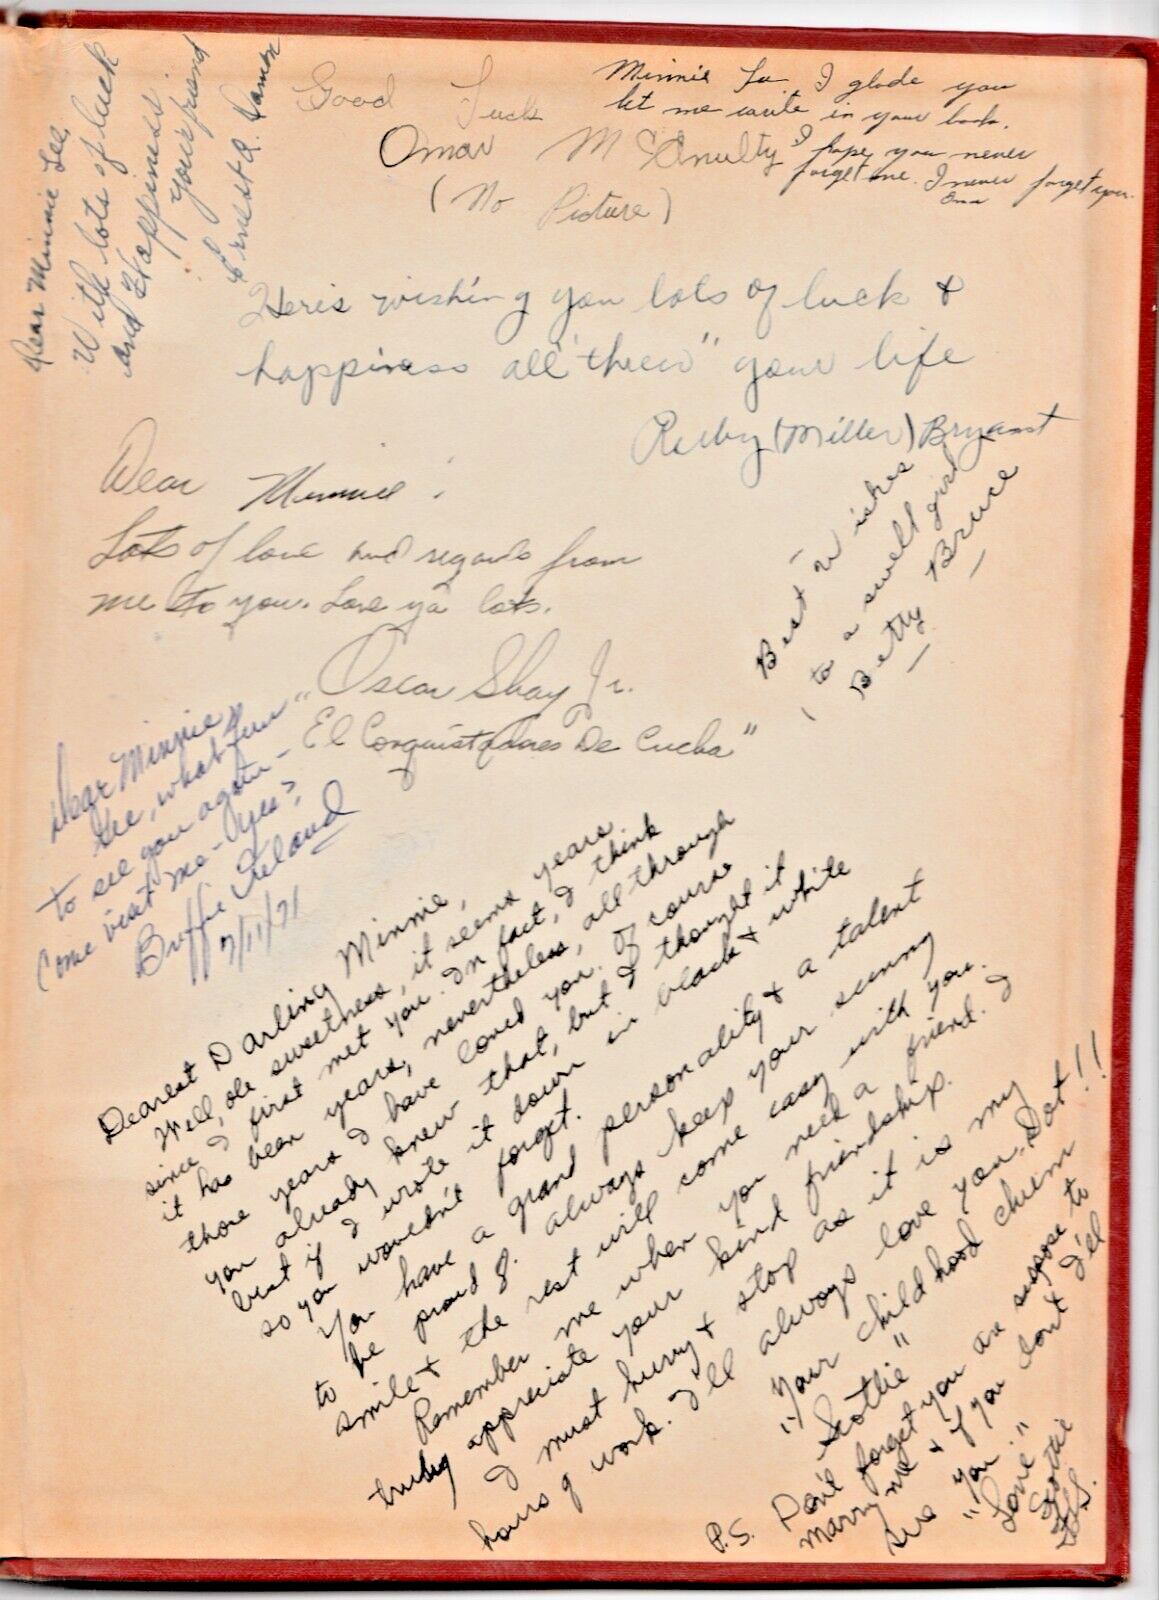 Dear Minnie Lee,
With lots of luck
and Happiness
your friend
Ernest A.
Good Luck
Omar McAnulty
(No Picture)
Minnie Lu I glade you
let me write in your book.
I hope you never
forget me. I never forget you.
Omar
Here's wishing you lots of luck &
happiness all "threw" your life
Ruby (Miller) Bryant
Best Wishes
to a swell girl
Betty Bruce
Dear Minnie:
Lots of love and regards from
me to you. Love ya lots.
Oscar Shay Jr.
"El Conquistadores De Cucha"
Dear Minnie,
Gee, what fun
to see you again -
Come visit me - Yes?
Buffie Ireland
7/11/71
Dearest Darling Minnie,
Well, ole sweetness, it seems years
since I first met you. In fact, I think
it has been years, nevertheless, all through
those years I have loved you. Of course
you already knew that, but I thought it
best if I wrote it down in black & white
so you wouldn't forget.
You have a grand personality & a talent
to be proud of. Always keep your sunny
smile & the rest will come easy with you.
Remember me when you need a friend. I
truly appreciate your kind friendship.
I must hurry & stop as it is my
hours of work. I'll always love you, Dot!!
"Your childhood chum
Scottie"
P.S. Don't forget you are suppose to
marry me & if you don't I'll
sue you."
"Love"
Scottie